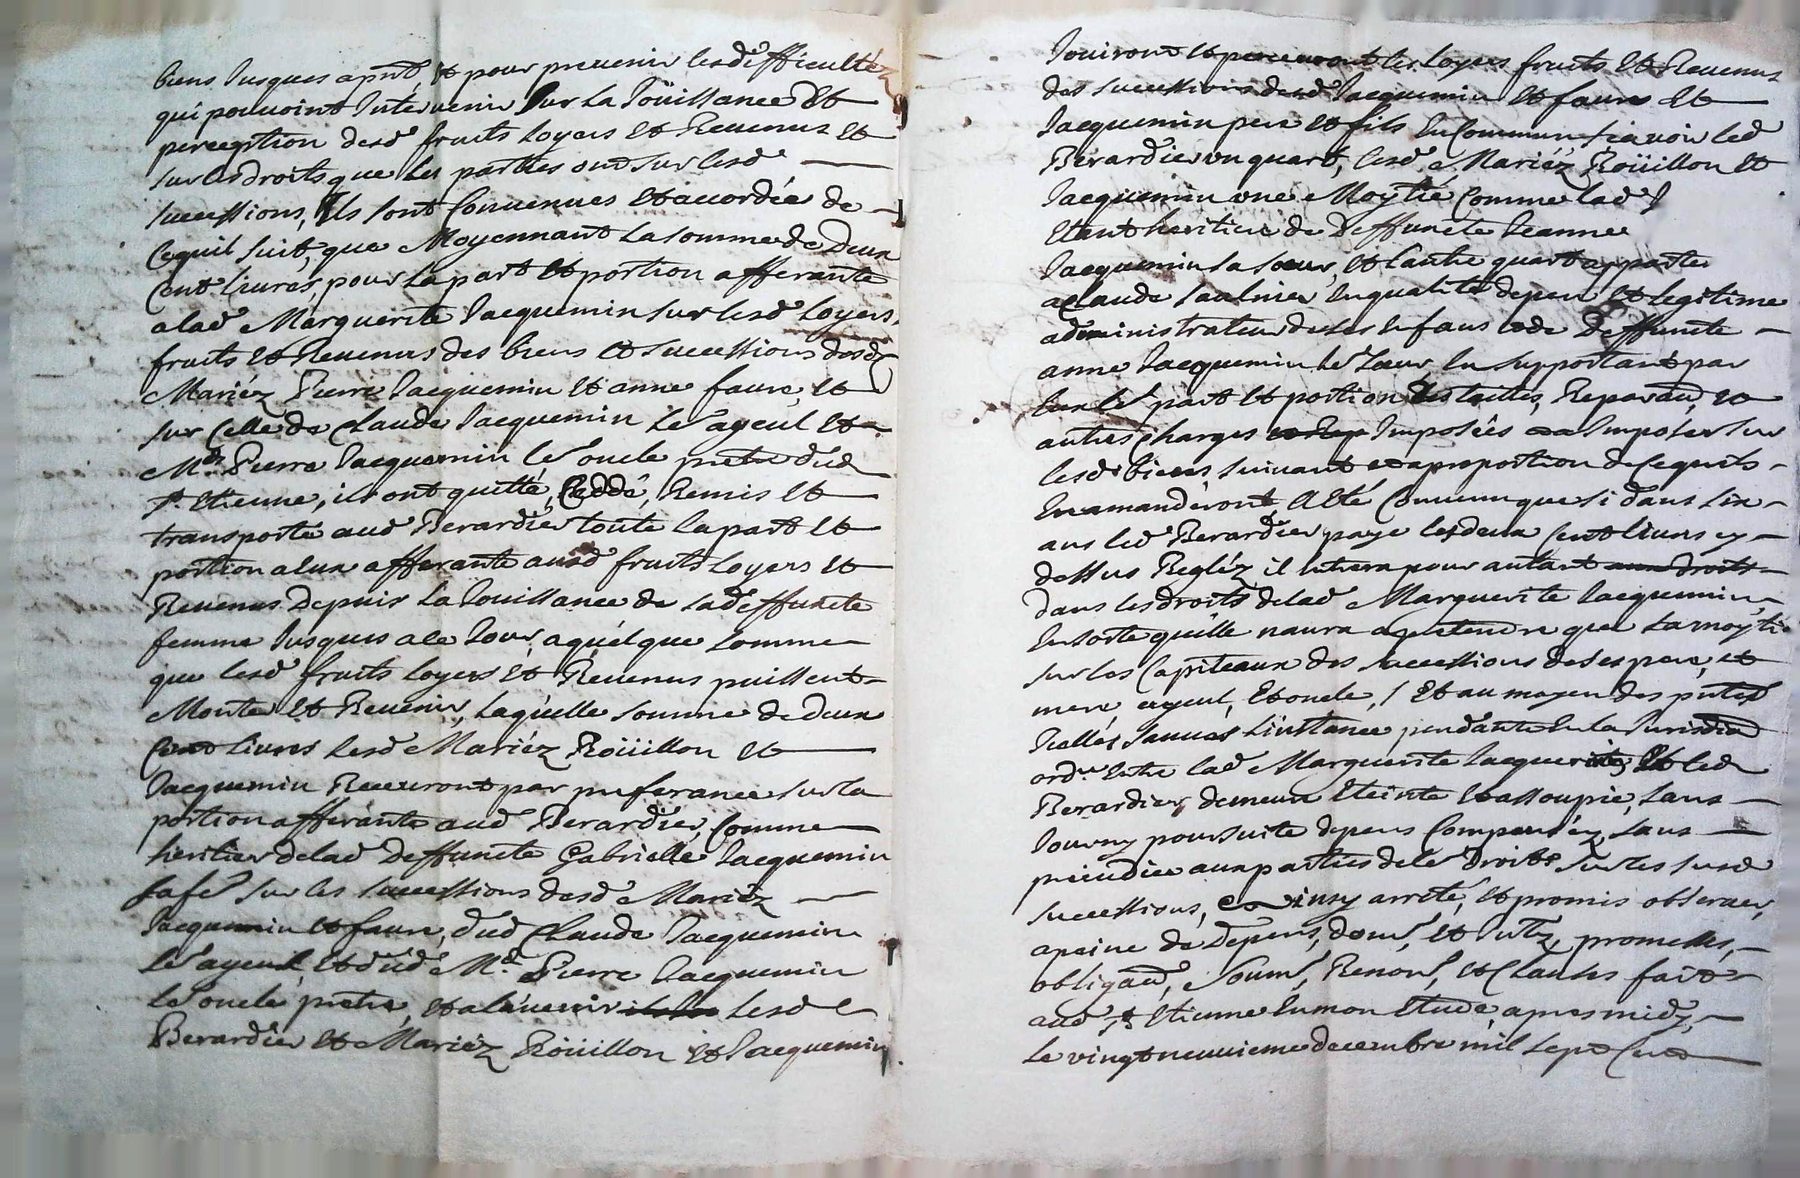 biens Jusques apnt, et pour preuenir lesd difficultéz
qui pouuoint Interuenir Sur La Joüissance Et
perception desd fruits Loyers Et Reuenus Et
sur les droits que les parties ont sur lesd
successions, Ils sont Conuenues Et accordée de
Cequil suit, que Moyennant La somme de Deux
Cent liures, pour La part Et portion afferante
alad Marguerite Jacquemin sur lesd Loyers,
fruits Et Reuenus des biens Et successions desd
Mariéz Pierre Jacquemin Et anne faure, Et
sur Celle de Claude Jacquemin Le ayeul Et
Mre Pierre Jacquemin Le oncle pretre dud
St Etienne, ils ont quitté, Ceddé, Remis Et
transporté aud Berardier toute La part Et
portion a Eux afferante ausd fruits Loyers Et
Reuenus Depuis La Jouissance de sad deffuncte
femme Jusques a Ce Jour, a quel que somme
que lesd fruits Loyers Et Reuenus puissent
Monter Et Reuenir, Laquelle somme de Deux
Cent Liures Lesd Mariéz Roüillon Et
Jacquemin Receuront par preferance sur La
portion afferante aud Berardier, Comme
heritier delad Deffuncte Gabrielle Jacquemin
safe sur les successions desd Mariéz
Jacquemin Et faure, dud Claude Jacquemin
Le ayeul, Et dud Mre Pierre Jacquemin
Le oncle pretre, Et a Lauenir Lesd
Berardier Et Mariéz Roüillon Et Jacquemin
Jouiront Et perceuront les Loyers fruits Et Reuenus
des successions desd Jacquemin Et faure Et
Jacquemin pere Et fils En Commun scauoir led
Berardier un quart, lesd Mariéz Roüillon Et
Jacquemin une Moytié Comme lad
Etant heritiere de Deffuncte Jeanne
Jacquemin sa sœur, Et L'autre quart appartient
a Claude Saulnier En qualité de pere Et legitime
administrateur de ses Enfans Et de Deffuncte
anne Jacquemin Le sœur, En supportant par
Eux Le part Et portion des tailles, Reparaon, Et
autres Charges Imposées Et a Imposer sur
lesd biens, suivant Et a proportion de Cequils
En amanderont, A Eté Conuenu que si dans six
ans led Berardier paye les deux Cent Liures cy
dessus Regléz il Entrera pour autant
dans les droits delad Marguerite Jacquemin
En sorte quelle naura a pretendre que La moytié
sur les Capiteaux des successions de ses pere, et
mere ayeul, Et oncle, / Et au moyen des pntes
Icelles Janues L'instance pendante En la Jurisdion
ordre Entre lad Marguerite Jacquemin Et led
Berardier, demeure Eteinte Et assoupie, sans
Pouuoir poursuite depens Compenséz, sans
preiudice aux parties de le Droits sur les susd
successions, ainsy arreté, Et promis obseruer,
a peine de Depens, dom, Et Intz, promesses,
obligaon, soum, Renon, Et Clauses fait
aud St Etienne En mon Etude apres midy,
Le vingt neuuieme decembre mil sept Cent